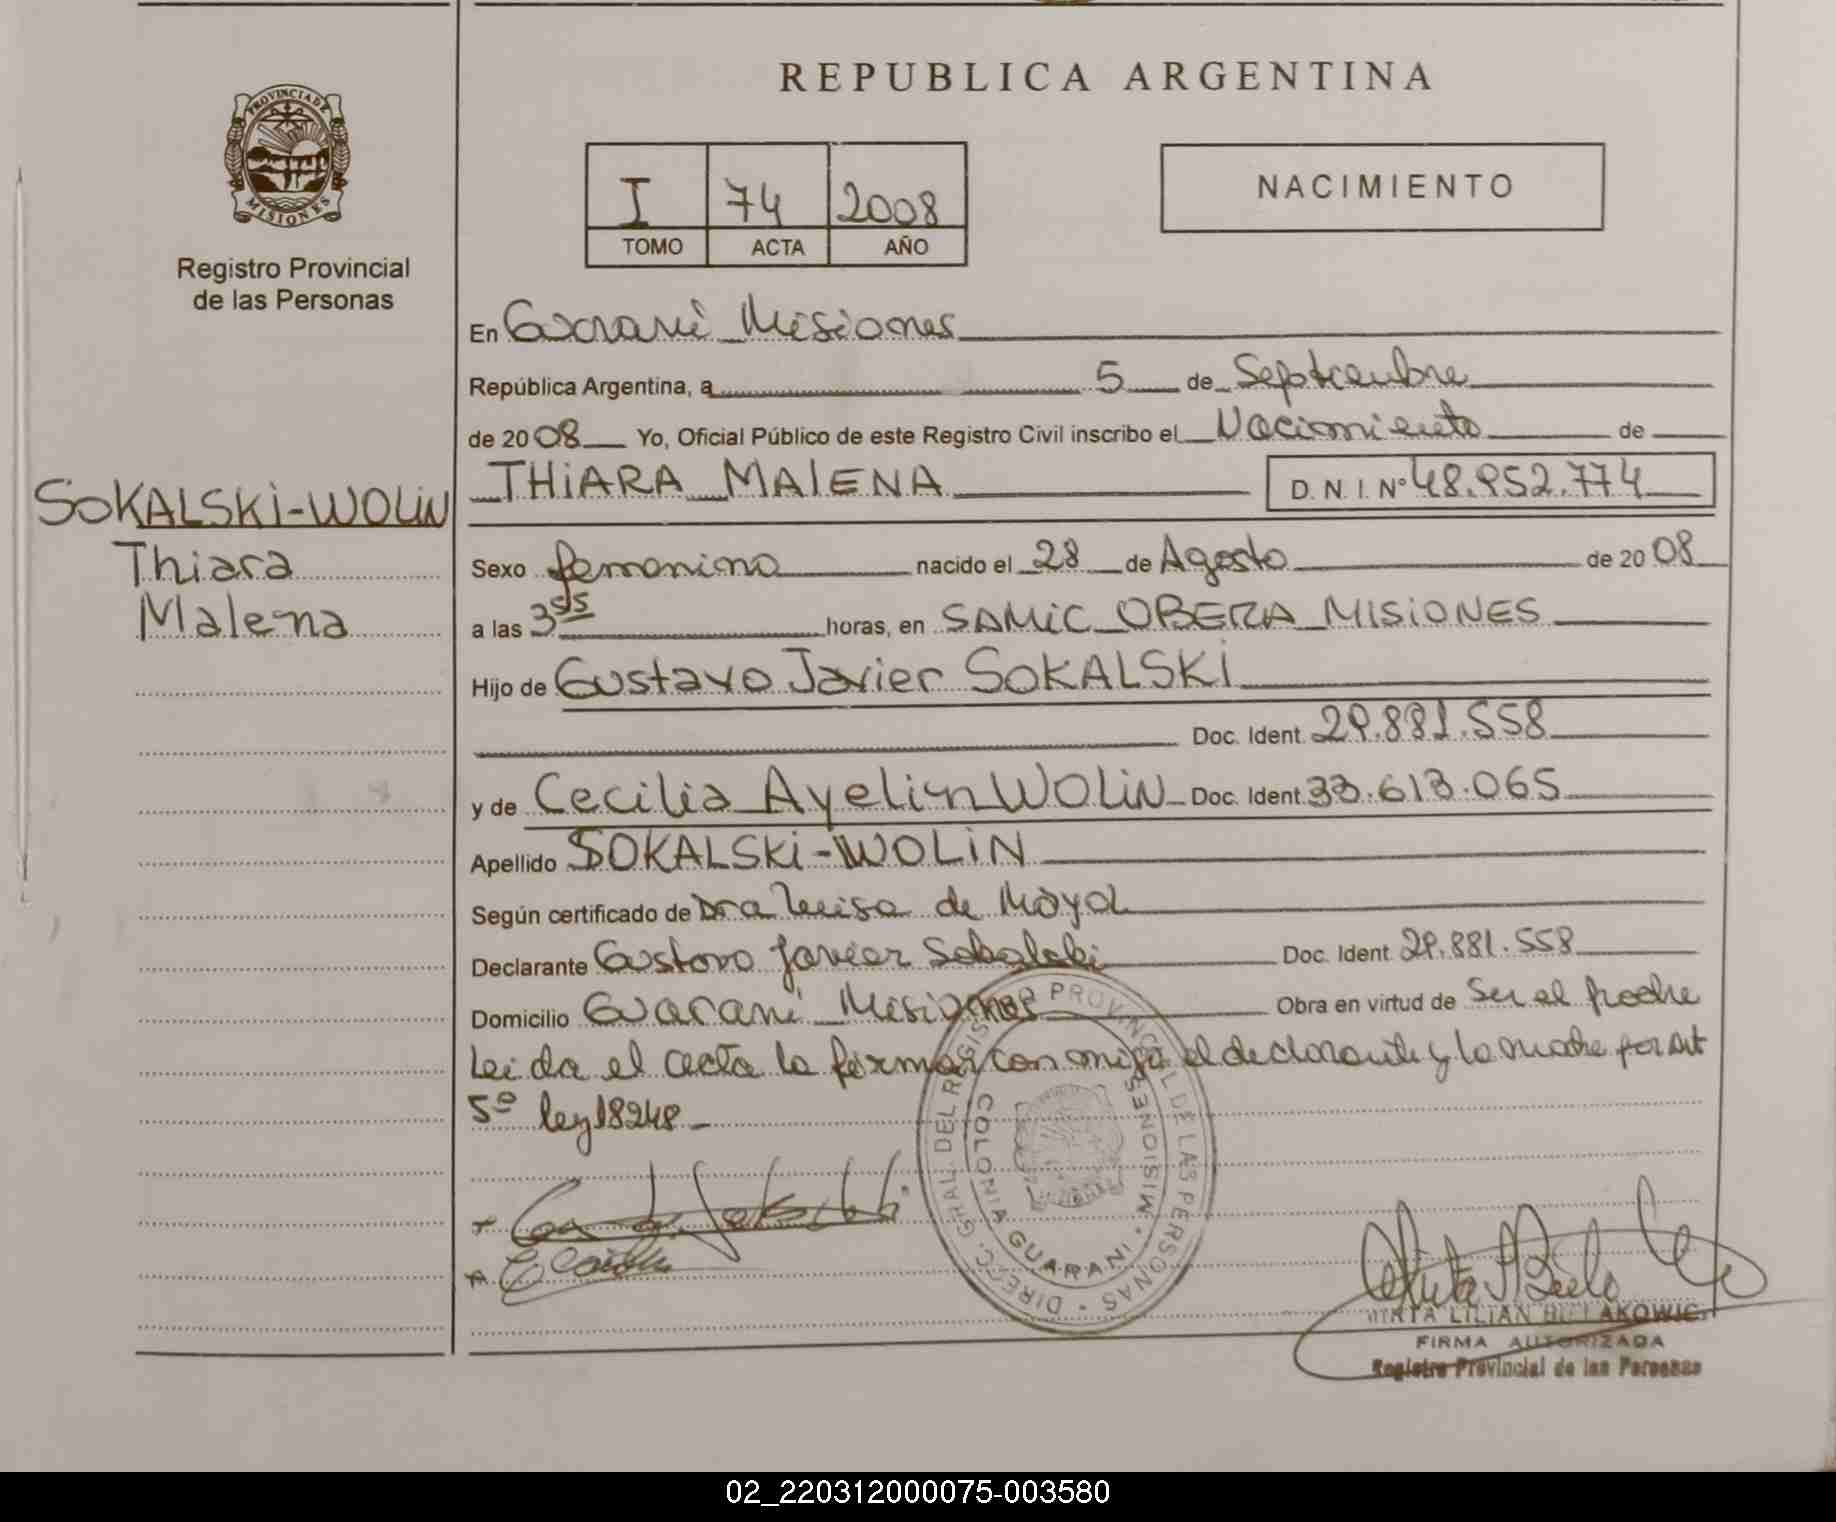 REPUBLICA ARGENTINA
PROVINCIA DE
MISIONES
Registro Provincial
de las Personas
I 74 2008
TOMO ACTA AÑO
NACIMIENTO
En Guarani Misiones
República Argentina, a 5 de Septiembre
de 2008 Yo, Oficial Público de este Registro Civil inscribo el Nacimiento de
THiARA MAlENA D.N.I. Nº 48.952.774
SOKALSKi-WOLiN
Thiara
Malena
Sexo femenino nacido el 28 de Agosto de 2008
a las 3 55 horas, en SAMiC OBERA MISiONES
Hijo de Gustavo Javier SOKALSKi
Doc. Ident. 29.881.558
y de Cecilia Ayelin WOLiN Doc. Ident. 33.613.065
Apellido SOKALSKi-WOLiN
Según certificado de Dra Luisa de Moyol
Declarante Gustavo Javier Sokalski Doc. Ident. 29.881.558
Domicilio Guarani Misiones Obra en virtud de Ser el padre
Leida el acta la firman con migo el declarante y la madre por Art
5º ley 18248.-
DIREC. GRAL. DEL REGISTRO PROVINCIAL DE LAS PERSONAS
COLONIA GUARANI · MISIONES
MIRTA LILIAN
FIRMA AUTORIZADA
Registro Provincial de las Personas
02_220312000075-003580